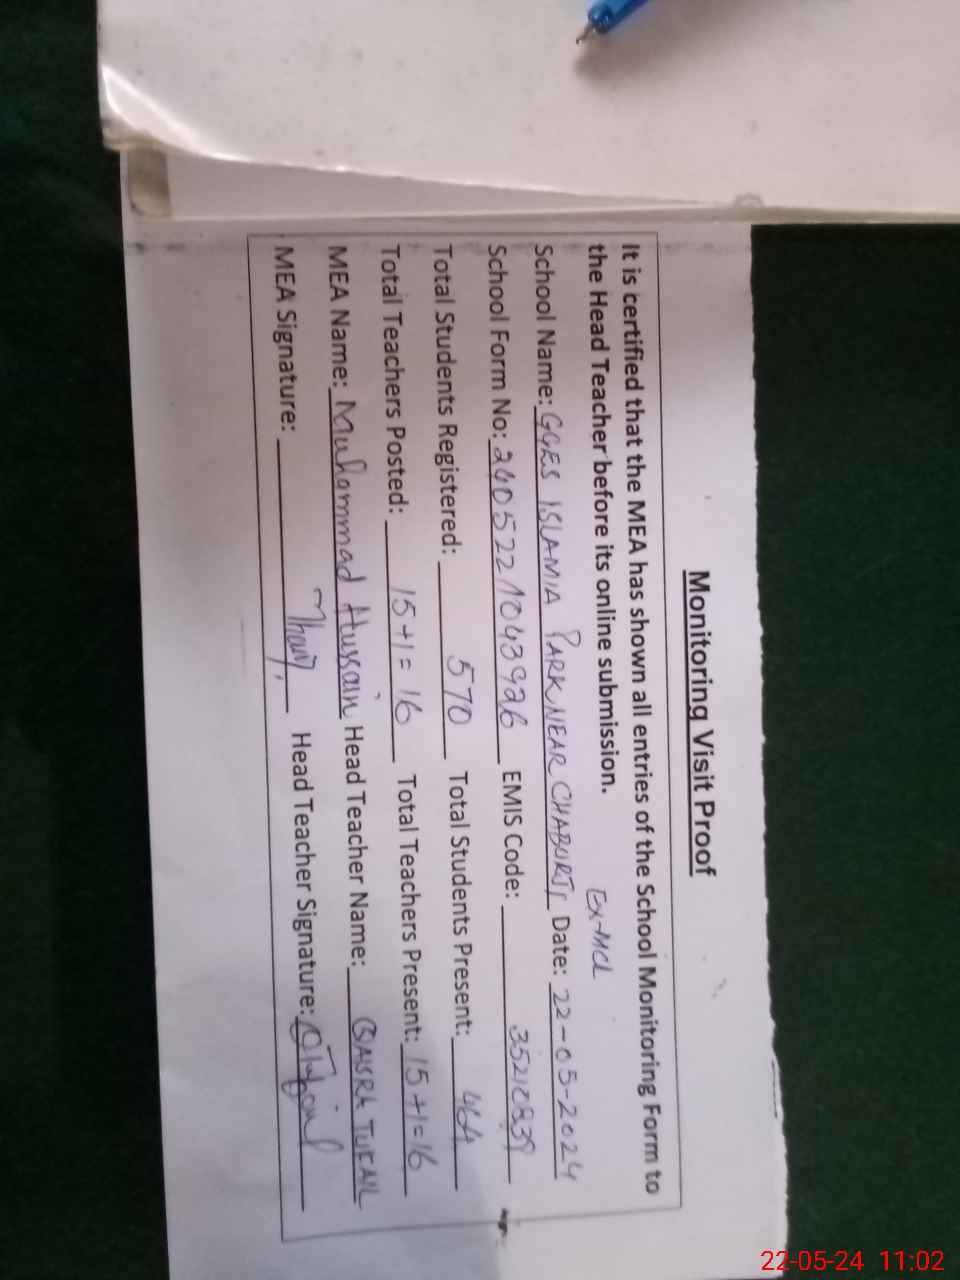 Monitoring Visit Proof
It is certified that the MEA has shown all entries of the School Monitoring Form to
the Head Teacher before its online submission. Ex-MCL
School Name: GGES ISLAMIA PARK NEAR CHABURJI Date: 22-05-2024
School Form No: 2405221043926 EMIS Code: 35210839
Total Students Registered: 570 Total Students Present: 464
Total Teachers Posted: 15+1=16 Total Teachers Present: 15+1=16
MEA Name: Muhammad Hussain Head Teacher Name: QAISRA TUFAIL
MEA Signature: Head Teacher Signature:
22-05-24 11:02